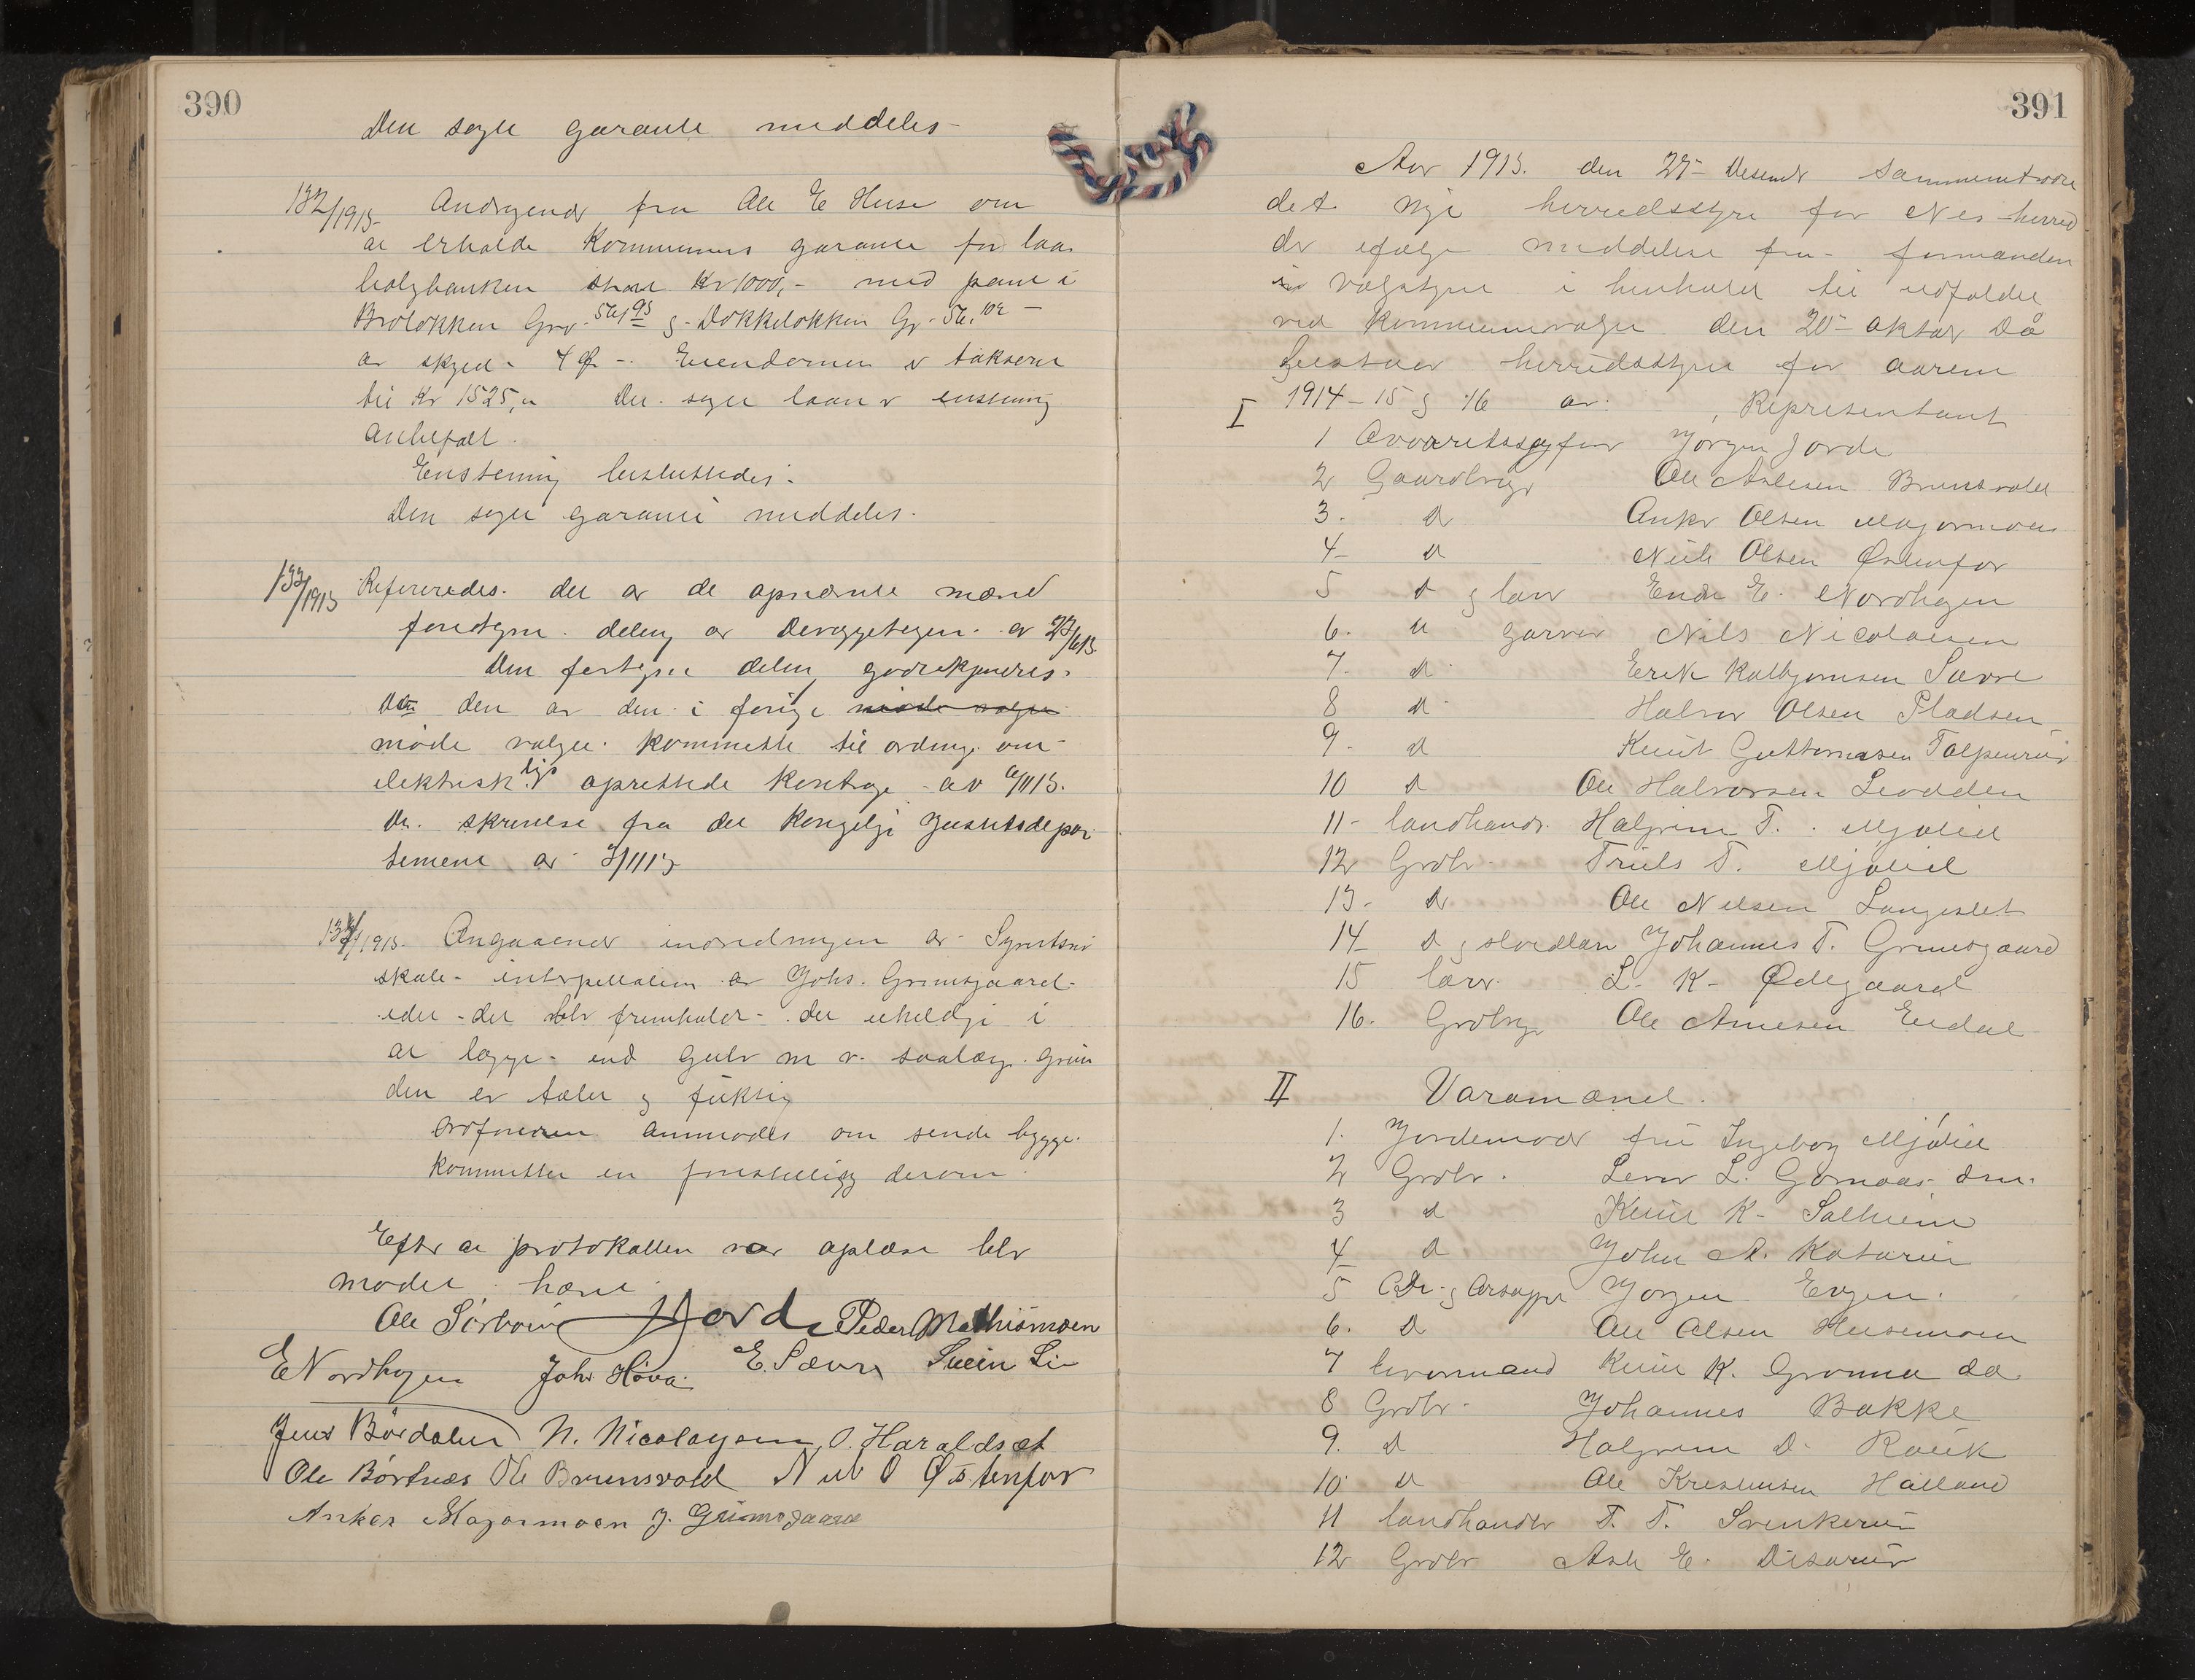 390
Den søgte garante meddeles
132/1913 Andragende fra Ole E Huse om
at erholde Kommunens garante for laan
bolygbanken stort Kr 1000,- med pant i
Broløkken Grn. 56/95 g Dokkeløkken Gr. 56.102
av skyld. 4 Eiendommen er takseret
til Kr 1525,- Det søgte laan er enstemig
anbefalt.
Enstemig besluttedes.
Den søgte garanti meddeles.
133/1913 Refereredes. det av de opnævnte mænd
foretagne deling av
Den foretagne deling godkjendtes.
den av den i forige møde valgte
møde valgte kommitte til ordning om
elektrisk lys oprettede kontragt av 6/11 13.
skrivelse fra det Kongelige Justitsdepar
tement av 3/11 13
134/1913. Angaaende indredningen av
skole interpellation av Johs. Grimsgaard
det blev fremholdt det uheldige i
at lægge ind gulv m v. saalænge grun
den er tælet g fuktig
Ordføreren anmodes om sende bygge
kommitten en forestilling derom.
Efter at protokollen var oplæst blev
mødet hævet
Ole Sørbøen J Jorde Peder Mathismoen
E Nordhagen Joh. Hova E. Sævre Svein Li
Jens Bårdalen N. Nicolaysen O. Haraldset
Ole Børtnæs Ole Brunsvold Nils O Østenfor
Anker Magormoen J. Grimsgaard
391
Aar 1913. den 27- Desember sammentraadte
det nye herredsstyre for Nes herred
der ifølge meddelse fra formanden
i valgstyre i henhold til udfaldet
ved kommunevalget den 20- oktober Då
bestaar herredsstyret for aarene
1914-15 g 16 av: Representant
I
1 Overretssagfører Jørgen Jorde
2 Gaardbruger Ole Aslesen Brunsvold
3. d Anker Olsen Magormoen
4- d Niels Olsen Østenfor
5 d g lærer Endre E. Nordhagen
6. d garver Nils Nicolaisen
7. d Erik Kolbjørnsen Sævre
8 d Halvor Olsen Pladsen
9. d Knut Guttormsen Tolpinrud
10 d Ole Halvorsen Liodden
11- landhandl. Halgrim T. Mjøliel
12 Grdbr. Truls T. Mjøliel
13. d Ole Nilsen Langeslet
14 d g Johannes T. Grimsgaard
15 lærer. L. K. Ødegaard
16. Grdbrug Ole Arnesen Eidal
II Varamænd.
1. Jordemoder fru Ingeborg Mjøliel
2 Grdbr. L. Garnaas
3 d Knut K. Solheim
4 d John A. Kolarud
5 Gdr. g Jørgen Ergen.
6. d Ole Olsen Husemoen
7 Knut K. Grønna
8 Grdbr. Johannes Bakke
9. d Halgrim D. Rauk
10 d Ole Kristensen Halland
11 landhandler T. T. Svenkerud
12 Grdbr Asle E. Diserud